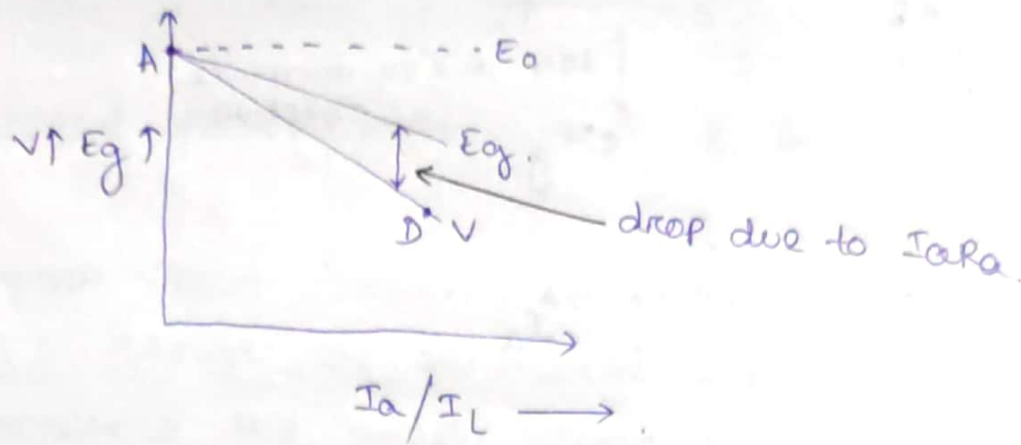 A
E₀
V↑ Eg ↑
Eg.
D V
drop due to IaRa.
Ia/I_L